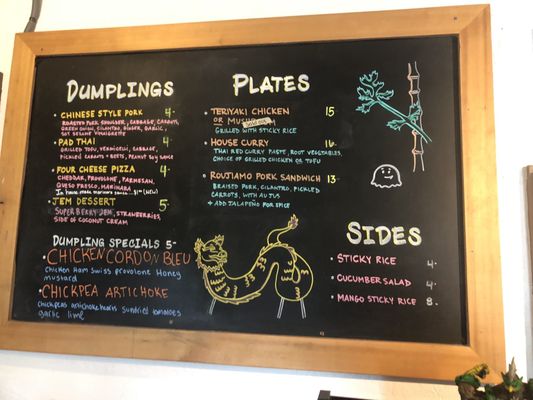 DUMPLINGS
• CHINESE STYLE PORK 4-
ROASTED PORK SHOULDER, CABBAGE, CARROTS,
GREEN ONION, CILANTRO, GINGER, GARLIC,
SOY SESAME VINAIGRETTE
• PAD THAI 4-
GRILLED TOFU, VERMICELLI, CABBAGE,
PICKLED CARROTS + BEETS, PEANUT SOY SAUCE
• FOUR CHEESE PIZZA 4-
CHEDDAR, PROVOLONE, PARMESAN,
QUESO FRESCO, MARINARA
JEM DESSERT 5-
SUPER BERRY JEM, STRAWBERRIES,
SIDE OF COCONUT CREAM
DUMPLING SPECIALS 5-
• CHICKEN CORDON BLEU
Chicken Ham Swiss provolone Honey
mustard
• CHICKPEA ARTICHOKE
Chickpeas artichoke hearts sundried tomatoes
garlic lime
PLATES
• TERIYAKI CHICKEN 15-
OR
GRILLED WITH STICKY RICE
• HOUSE CURRY 16-
THAI RED CURRY PASTE, ROOT VEGETABLES,
CHOICE OF GRILLED CHICKEN OR TOFU
• ROUJIAMO PORK SANDWICH 13-
BRAISED PORK, CILANTRO, PICKLED
CARROTS, WITH AU JUS
+ ADD JALAPEÑO FOR SPICE
SIDES
• STICKY RICE 4-
• CUCUMBER SALAD 4-
• MANGO STICKY RICE 8-